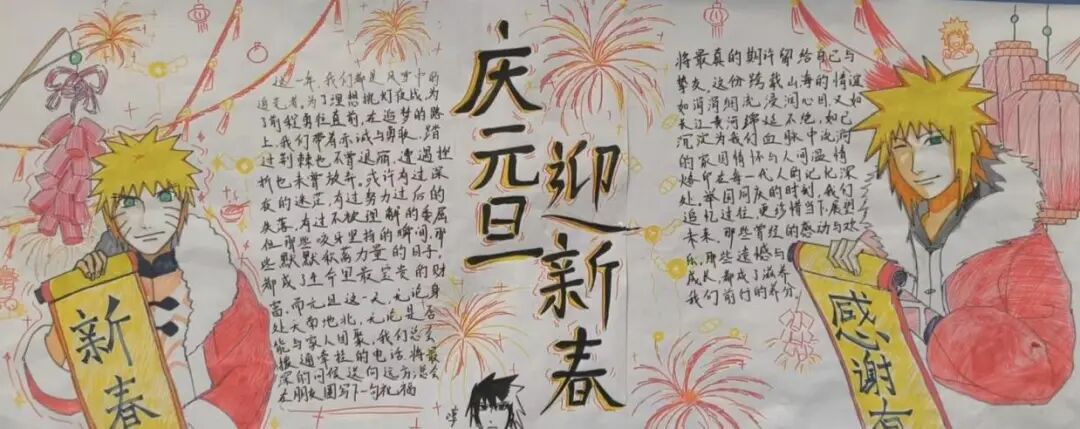 庆元旦
迎新春
这一年,我们都是风雪中的
追光者。为了理想挑灯夜战,为
了前程勇往直前,在追梦的路
上,我们带着赤诚与勇敢,踏
过荆棘也不曾退廍,遭遇挫
折也未曾放弃。或许有过深
夜的迷茫,有过努力过后的
失落,有过不被理解的委屈
但那些咬牙坚持的瞬间,那
些默默积蓄力量的日子,
都成了生命里最宝贵的财
富,而元旦这一天,无论身
处天南地北,无论是否
能与家人团聚,我们总会
拨通牵挂的电话,将最
深的问候送向远方,总会
在朋友圈写下一句祝福
将最真的期许留给自己与
挚友。这份跨越山海的情谊
如涓涓细流,浸润心田,又如
长江黄河绵延不绝,如已
沉淀为我们血脉中流淌
的家国情怀与人间温情
烙印在每一代人的记忆深
处,举国同庆的时刻,我们
追忆过往,更珍惜当下,展望
未来,那些曾经的感动与欢
乐,那些遗憾与
成长,都成了滋养
我们前行的养分。
新春
感谢有